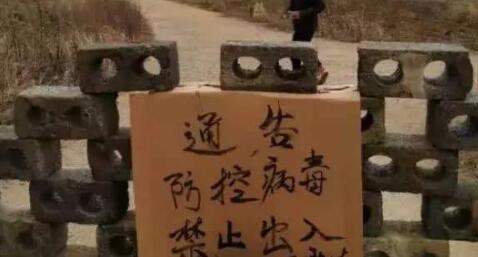 通告
防控病毒
禁止出入